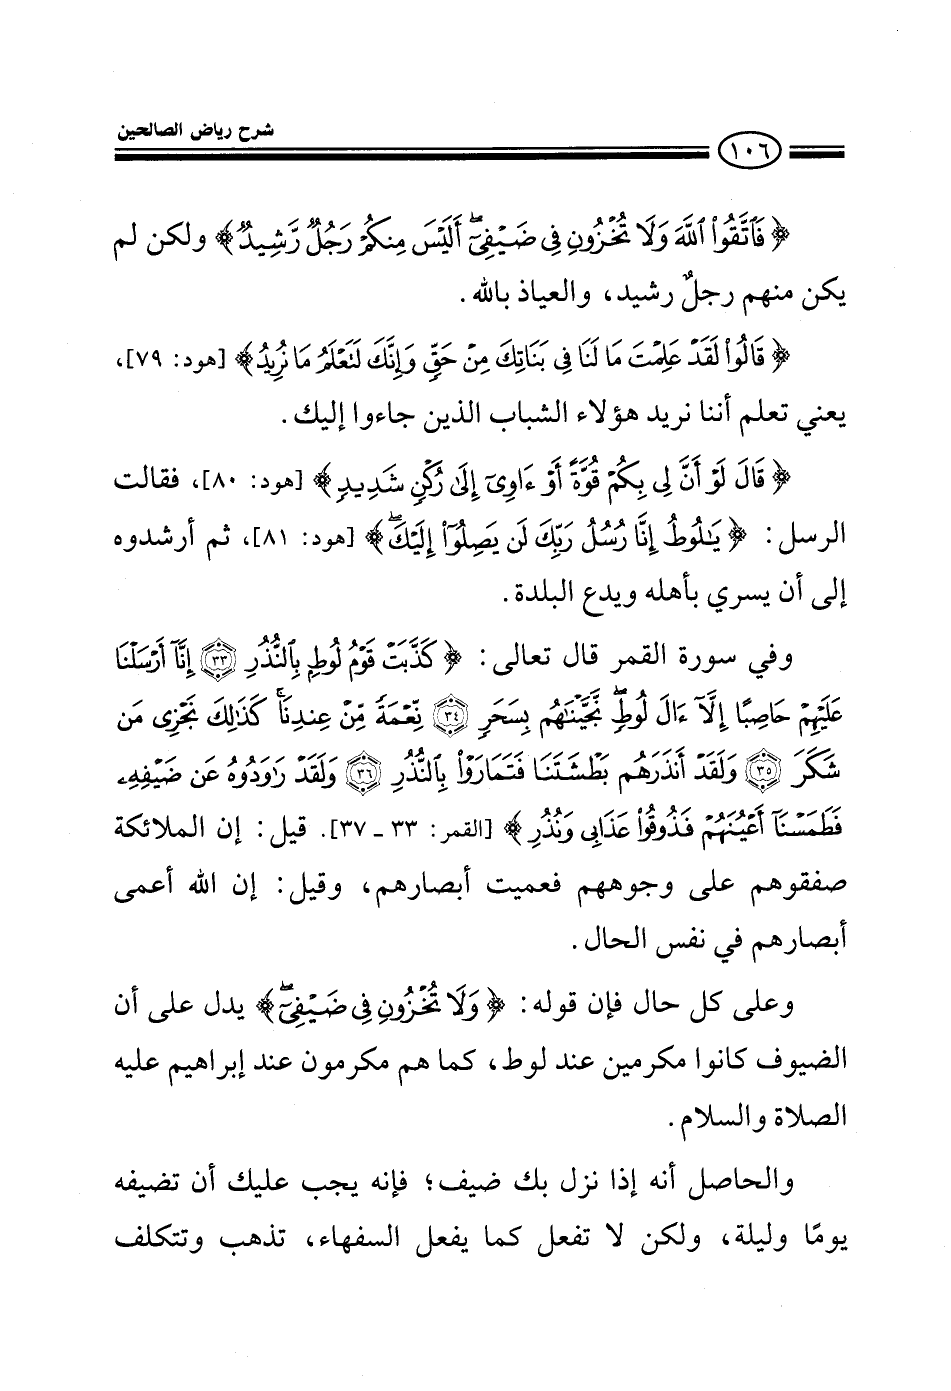 شرح رياض الصالحين
١٠٦
﴿ فَٱتَّقُوا۟ ٱللَّهَ وَلَا تُخْزُونِ فِى ضَيْفِىٓ ۖ أَلَيْسَ مِنكُمْ رَجُلٌ رَّشِيدٌ ﴾ ولكن لم
يكن منهم رجلٌ رشيد، والعياذ بالله.
﴿ قَالُوا۟ لَقَدْ عَلِمْتَ مَا لَنَا فِى بَنَاتِكَ مِنْ حَقٍّ وَإِنَّكَ لَتَعْلَمُ مَا نُرِيدُ ﴾ [هود: ٧٩]،
يعني تعلم أننا نريد هؤلاء الشباب الذين جاءوا إليك.
﴿ قَالَ لَوْ أَنَّ لِى بِكُمْ قُوَّةً أَوْ ءَاوِىٓ إِلَىٰ رُكْنٍ شَدِيدٍ ﴾ [هود: ٨٠]، فقالت
الرسل: ﴿ يَـٰلُوطُ إِنَّا رُسُلُ رَبِّكَ لَن يَصِلُوٓا۟ إِلَيْكَ ۖ ﴾ [هود: ٨١]، ثم أرشدوه
إلى أن يسري بأهله ويدع البلدة.
وفي سورة القمر قال تعالى: ﴿ كَذَّبَتْ قَوْمُ لُوطٍۭ بِٱلنُّذُرِ ٣٣ إِنَّآ أَرْسَلْنَا
عَلَيْهِمْ حَاصِبًا إِلَّآ ءَالَ لُوطٍ ۖ نَّجَّيْنَـٰهُم بِسَحَرٍ ٣٤ نِّعْمَةً مِّنْ عِندِنَا ۚ كَذَٰلِكَ نَجْزِى مَن
شَكَرَ ٣٥ وَلَقَدْ أَنذَرَهُم بَطْشَتَنَا فَتَمَارَوْا۟ بِٱلنُّذُرِ ٣٦ وَلَقَدْ رَٰوَدُوهُ عَن ضَيْفِهِۦ
فَطَمَسْنَآ أَعْيُنَهُمْ فَذُوقُوا۟ عَذَابِى وَنُذُرِ ﴾ [القمر: ٣٣ - ٣٧]. قيل: إن الملائكة
صفقوهم على وجوههم فعميت أبصارهم، وقيل: إن الله أعمى
أبصارهم في نفس الحال.
وعلى كل حال فإن قوله: ﴿ وَلَا تُخْزُونِ فِى ضَيْفِىٓ ۖ ﴾ يدل على أن
الضيوف كانوا مكرمين عند لوط، كما هم مكرمون عند إبراهيم عليه
الصلاة والسلام.
والحاصل أنه إذا نزل بك ضيف؛ فإنه يجب عليك أن تضيفه
يومًا وليلة، ولكن لا تفعل كما يفعل السفهاء، تذهب وتتكلف